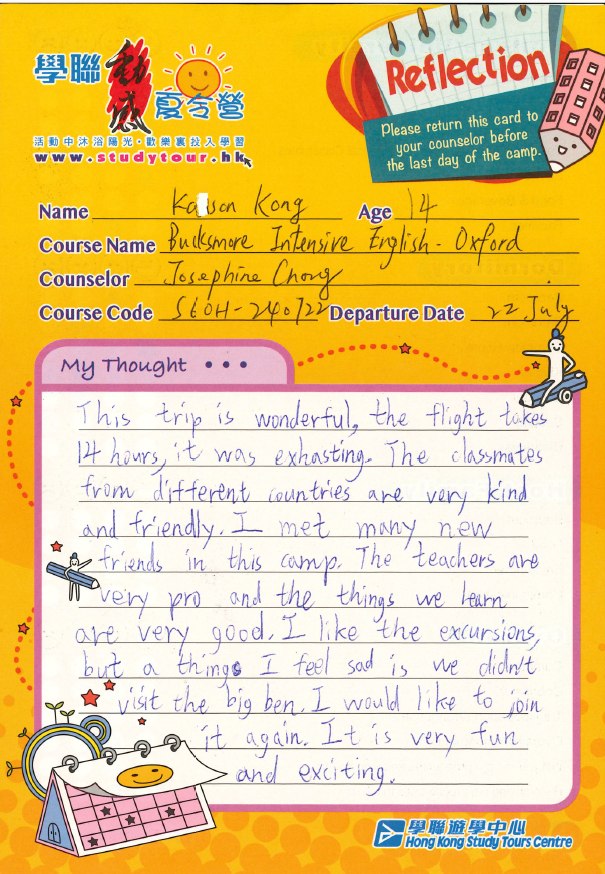 學聯 動感 夏令營
活動中沐浴陽光·歡樂裏投入學習
www.studytour.hk
Reflection
Please return this card to
your counselor before
the last day of the camp.
Name Kaison Kong Age 14
Course Name Bucksmore Intensive English - Oxford
Counselor Josephine Chong
Course Code SEOH-240722 Departure Date 22 July
My Thought • • •
This trip is wonderful, the flight takes
14 hours, it was exhasting. The classmates
from different countries are very kind
and friendly. I met many new
friends in this camp. The teachers are
very pro and the things we learn
are very good. I like the excursions,
but a things I feel sad is we didn't
visit the big ben. I would like to join
it again. It is very fun
and exciting.
學聯遊學中心
Hong Kong Study Tours Centre